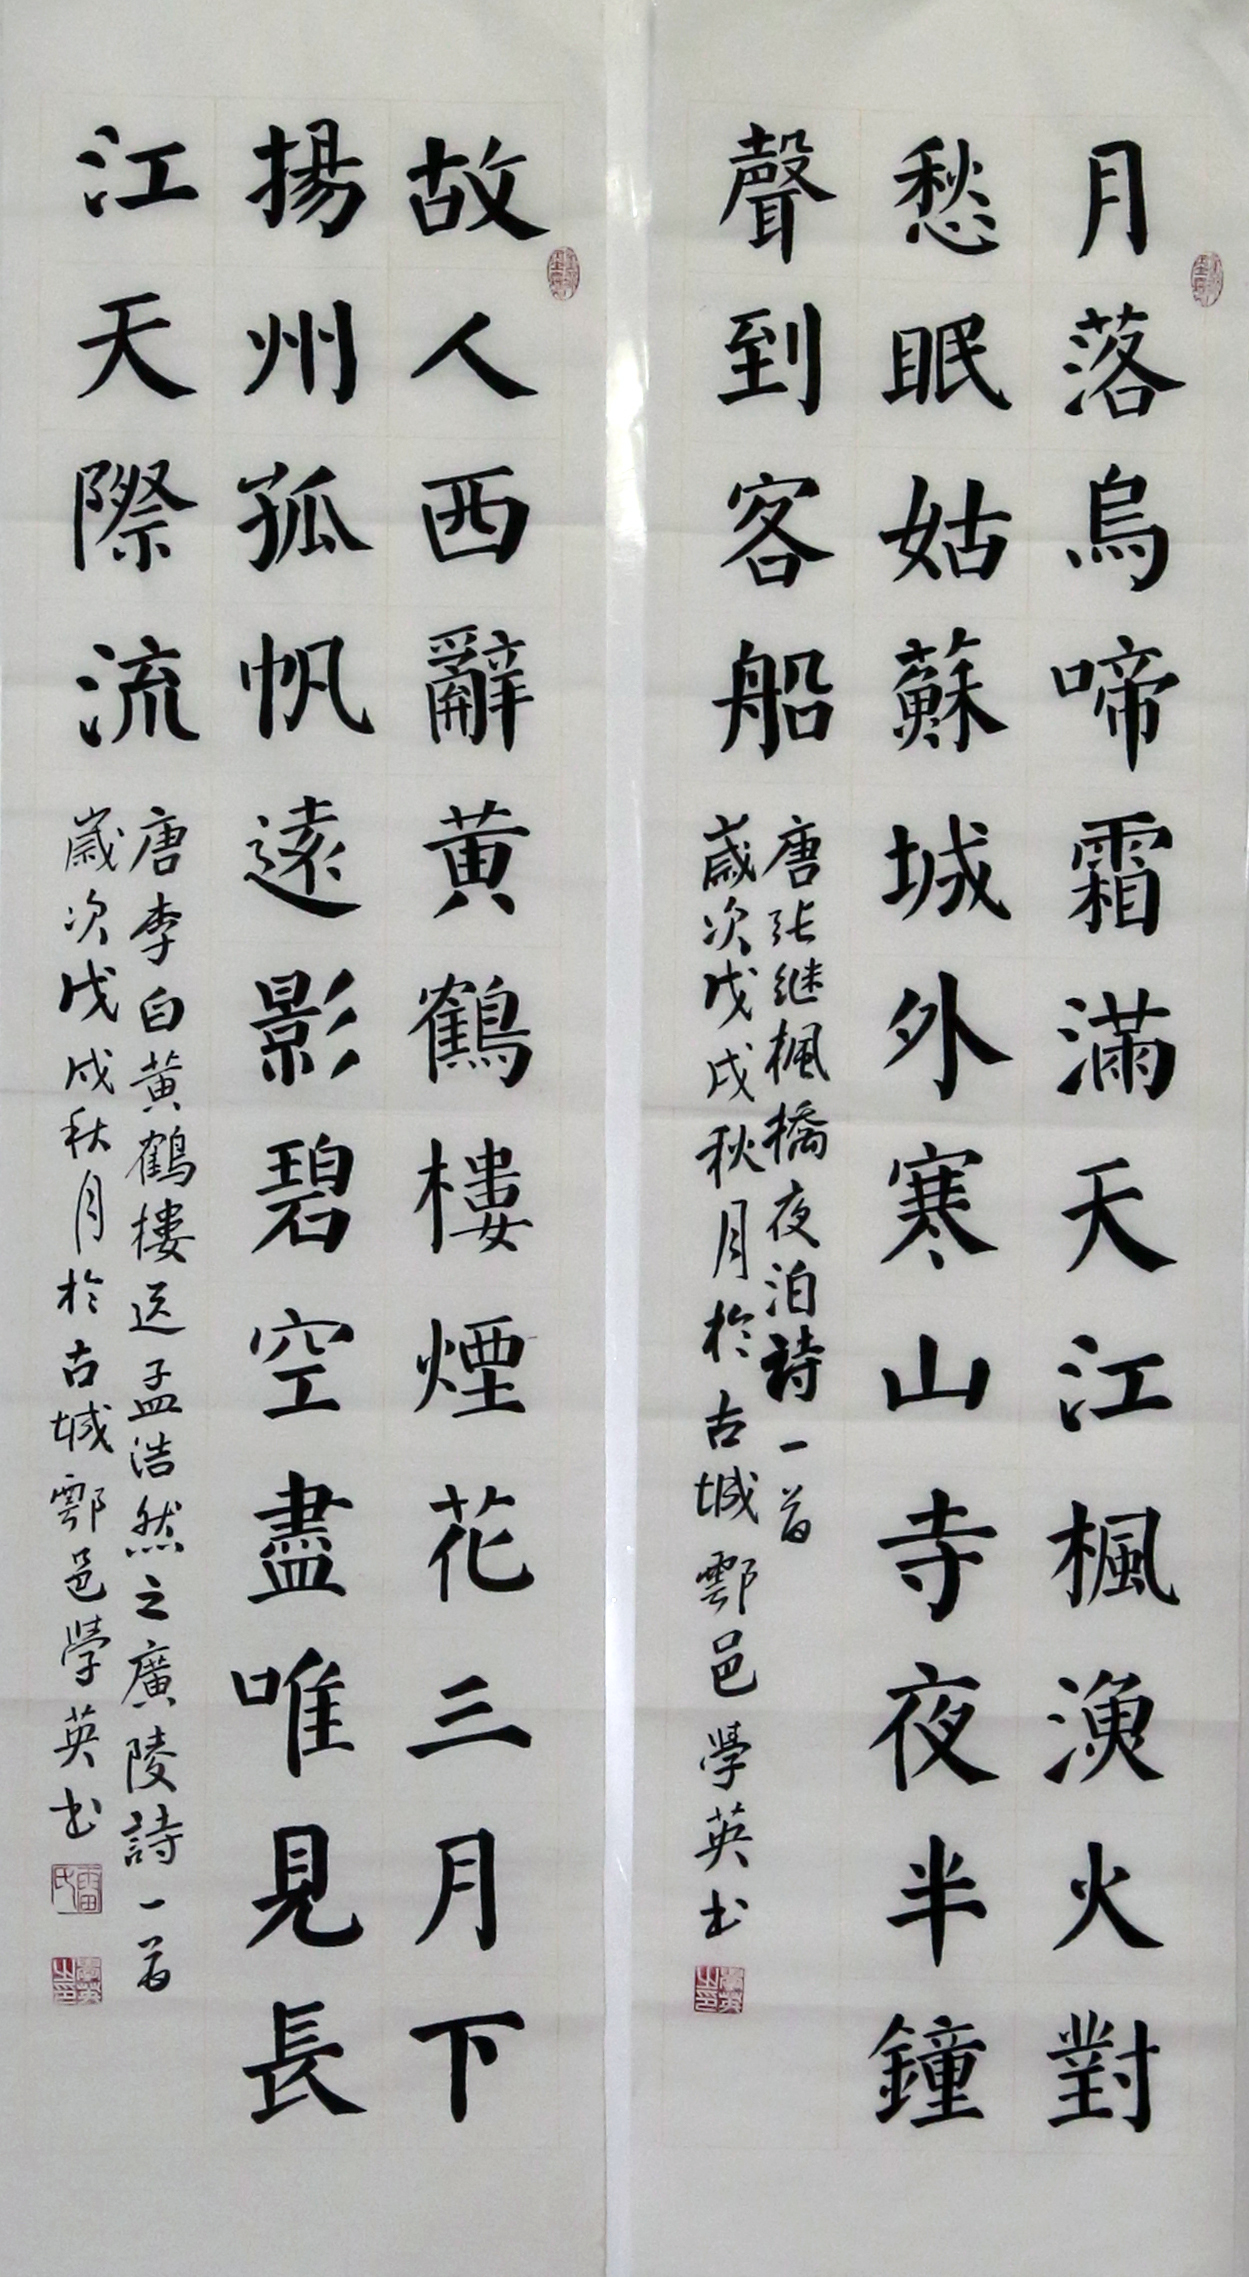 月落烏啼霜滿天江楓漁火對
愁眠姑蘇城外寒山寺夜半鐘
聲到客船
唐张继楓橋夜泊詩一首
歲次戊戌秋月於古城鄠邑學英书
故人西辭黄鶴樓煙花三月下
揚州孤帆遠影碧空盡唯見長
江天際流
唐李白黄鶴樓送孟浩然之廣陵詩一首
歲次戊戌秋月於古城鄠邑學英书